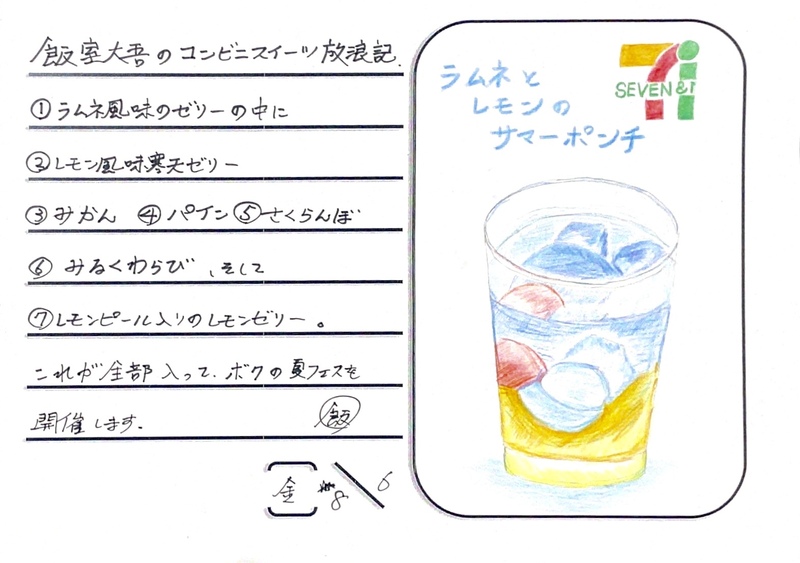 飯室大吾のコンビニスイーツ放浪記.
①ラムネ風味のゼリーの中に
②レモン風味寒天ゼリー
③みかん ④パイン⑤さくらんぼ
⑥ みるくわらび 、そして
⑦レモンピール入りのレモンゼリー。
これが全部入って、ボクの夏フェスを
開催します.
飯
金 8 6
ラムネと
レモンの
サマーポンチ
7i
SEVEN&i